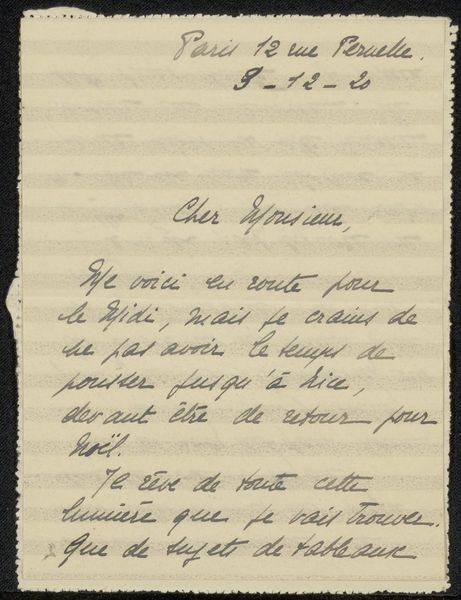 Paris 12 rue Peruelle.
9-12-20
Cher Monsieur,
Me voici en route pour
le Midi, mais je crains de
ne pas avoir le temps de
pousser jusqu'à Nice,
devant être de retour pour
Noël.
Je rêve de toute cette
lumière que je vais trouver.
Que de sujets de tableaux